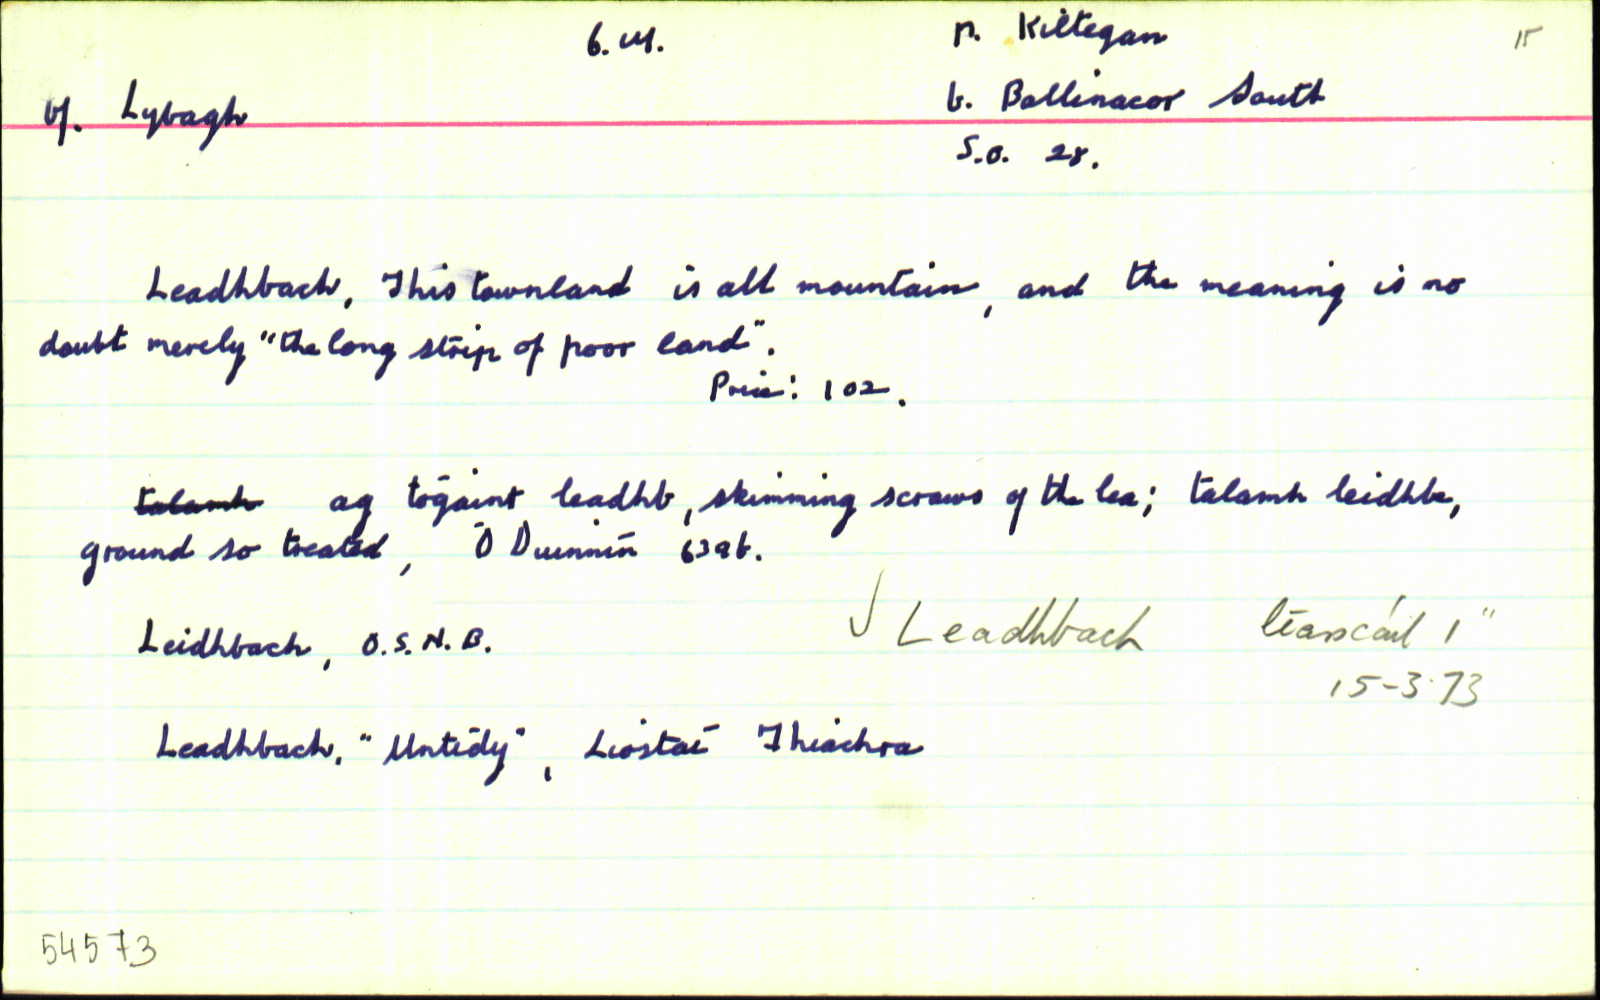 6. M.
p. Kiltegan
15
bf. Lybagh
b. Ballinacor South
S.O. 28.
Leadhbach, This townland is all mountain, and the meaning is no
doubt merely "the long strip of poor land".
Price: 102.
talamh ag tógaint leadhb, skimming scraws of the lea; talamh leidhbe,
ground so treated, Ó Duinnín 639b.
Leidhbach, O.S.N.B.
Leadhbach léarscáil 1"
15-3-73
Leadhbach. "Untidy", Liostaí Fhiachra
54573